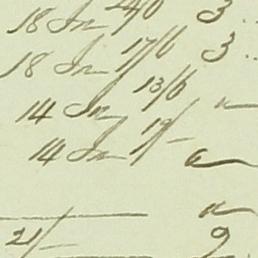 18 In 24/0 3
18 In 17/6 3
14 In 13/6 "
14 In 12/- "
"
21/- 9